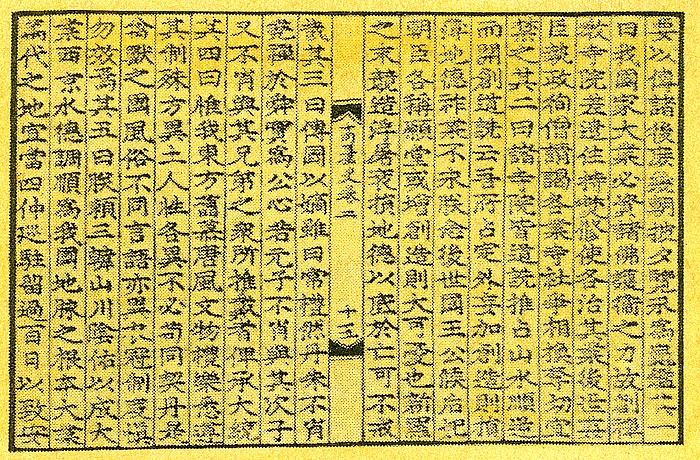 要以傳諸後庶幾朝披夕覽永爲龜鑑其一
曰我國家大業必資諸佛護衛之力故創禪
敎寺院差遣住持焚修使各治其業後世姦
臣執政徇僧請謁各業寺社爭相換奪切宜
禁之其二曰諸寺院皆道詵推占山水順逆
而開創道詵云吾所占定外妄加創造則損
薄地德祚業不永朕念後世國王公侯后妃
朝臣各稱願堂或增創造則大可憂也新羅
之末競造浮屠衰損地德以底於亡可不戒
高麗史卷二 十五
哉其三曰傳國以嫡雖曰常禮然丹朱不肖
堯禪於舜實爲公心若元子不肖與其次子
又不肖與其兄弟之衆所推戴者俾承大統
其四曰惟我東方舊慕唐風文物禮樂悉遵
其制殊方異土人性各異不必苟同契丹是
禽獸之國風俗不同言語亦異衣冠制度愼
勿效焉其五曰朕賴三韓山川陰佑以成大
業西京水德調順爲我國地脉之根本大業
萬代之地宜當四仲巡駐留過百日以致安